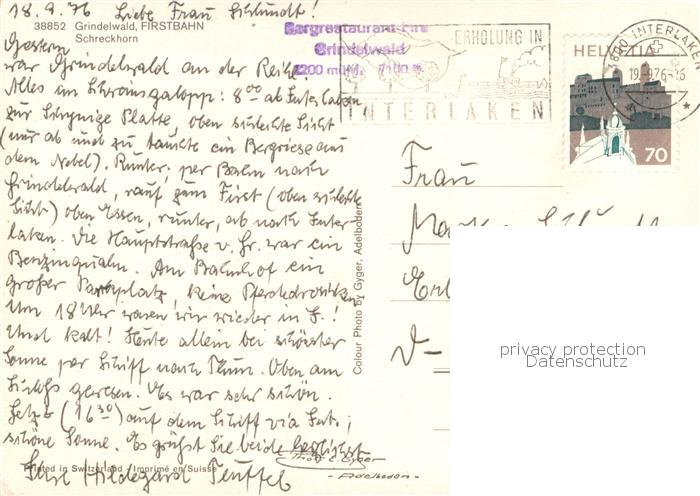 18.9.76 Liebe Frau Schlundt!
38852 Grindelwald, FIRSTBAHN
Schreckhorn
Gestern
war Grindelwald an der Reihe.
Alles im Schweinsgalopp: 8 00 ab Interlaken
zur Schynige Platte, oben schlechte Sicht
(nur ab und zu tauchte ein Bergriese aus
dem Nebel). Runter, per Bahn nach
Grindelwald, rauf zum First (oben schlechte
Sicht) oben Essen, runter, ab nach Inter-
laken. Die Hauptstraße v. Gr. war ein
Benzinqualm. Am Bahnhof ein
großer Parkplatz, keine Pferdedroschken.
Um 18 Uhr waren wir wieder in I.!
Und kalt! Heute allein bei schönster
Sonne per Schiff nach Thun. Oben am
Schloß gewesen. Es war sehr schön.
Jetzt (16 30) auf dem Schiff via Int.;
schöne Sonne. Es grüßt Sie beide herzlichst
Ihre Hildegard Teuffel
Printed in Switzerland - Imprimé en Suisse
Photo E. Gyger
- Adelboden -
Colour Photo by Gyger, Adelboden
Bergrestaurant First
Grindelwald
2200 m
ERHOLUNG IN
INTERLAKEN
3800 INTERLAKEN
19.9.76-
HELVETIA
70
Frau
D-
privacy protection
Datenschutz